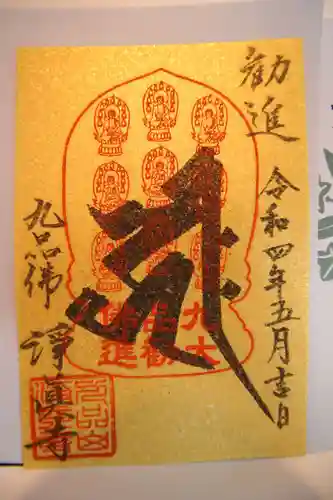 勧進
令和四年五月吉日
九品佛
大勧進
九品佛
淨眞寺